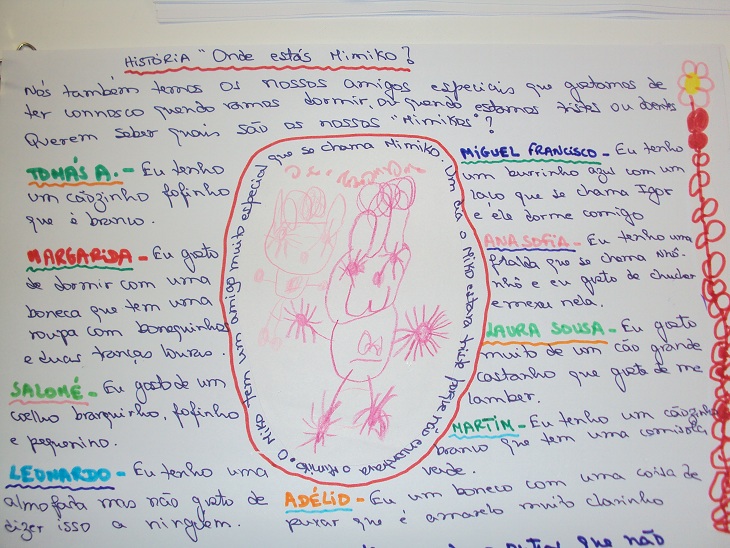 HISTÓRIA "Onde estás Mimiko?
Nós também temos os nossos amigos especiais que gostamos de
ter connosco quando vamos dormir, ou quando estamos tristes ou doentes
Querem saber quais são os nossos "Mimikos"?
TOMÁS A. - Eu tenho
um cãozinho fofinho
que é branco.
MARGARIDA - Eu gosto
de dormir com uma
boneca que tem uma
roupa com bonequinhos
e duas tranças louras.
SALOMÉ - Eu gosto de um
coelho branquinho, fofinho
e pequenino.
LEONARDO - Eu tenho uma
almofada mas não gosto de
dizer isso a ninguém.
O Niko tem um amigo muito especial que se chama Mimiko. Um dia o Niko estava triste porque não encontrava o Mimiko.
MIGUEL FRANCISCO - Eu tenho
um burrinho azul com um
laço que se chama Igor
e ele dorme comigo
ANA SOFIA - Eu tenho uma
fralda que se chama Nhó-
nhó e eu gosto de chuchar
e mexer nela.
LAURA SOUSA - Eu gosto
muito de um cão grande
castanho que gosta de me
lamber.
MARTIM - Eu tenho um cãozinho
branco que tem uma camisola
verde.
ADÉLIO - Eu um boneco com uma coisa de
puxar que é amarelo muito clarinho
que não